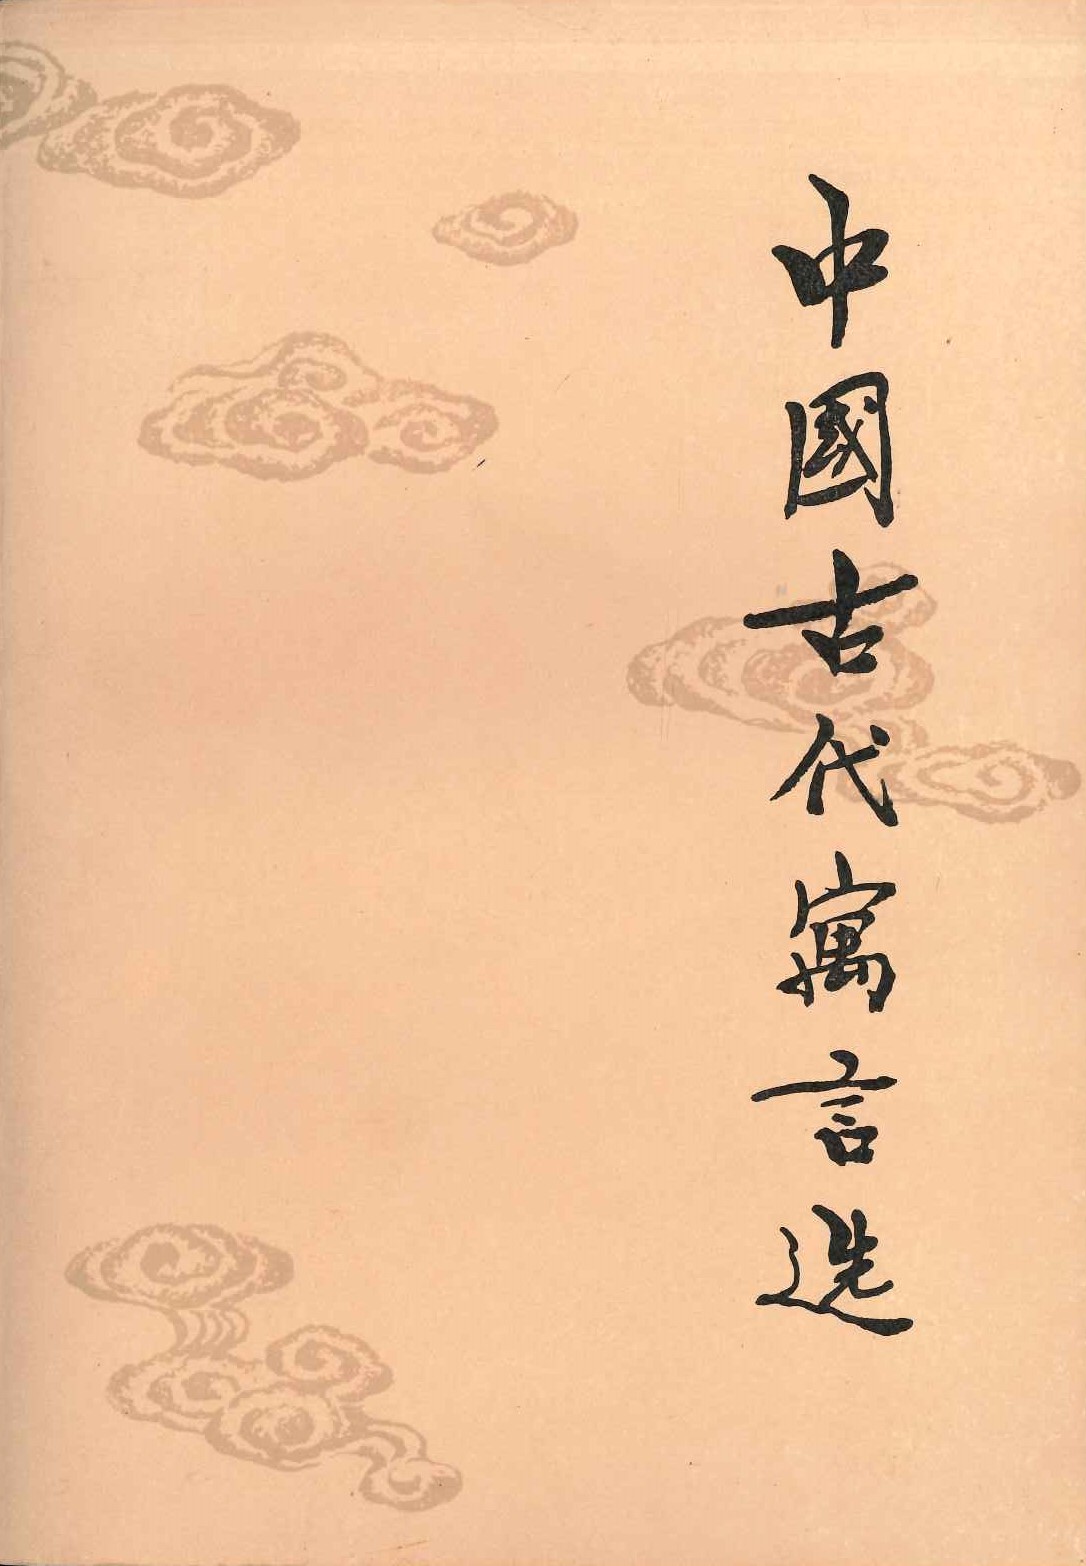 中國古代寓言选